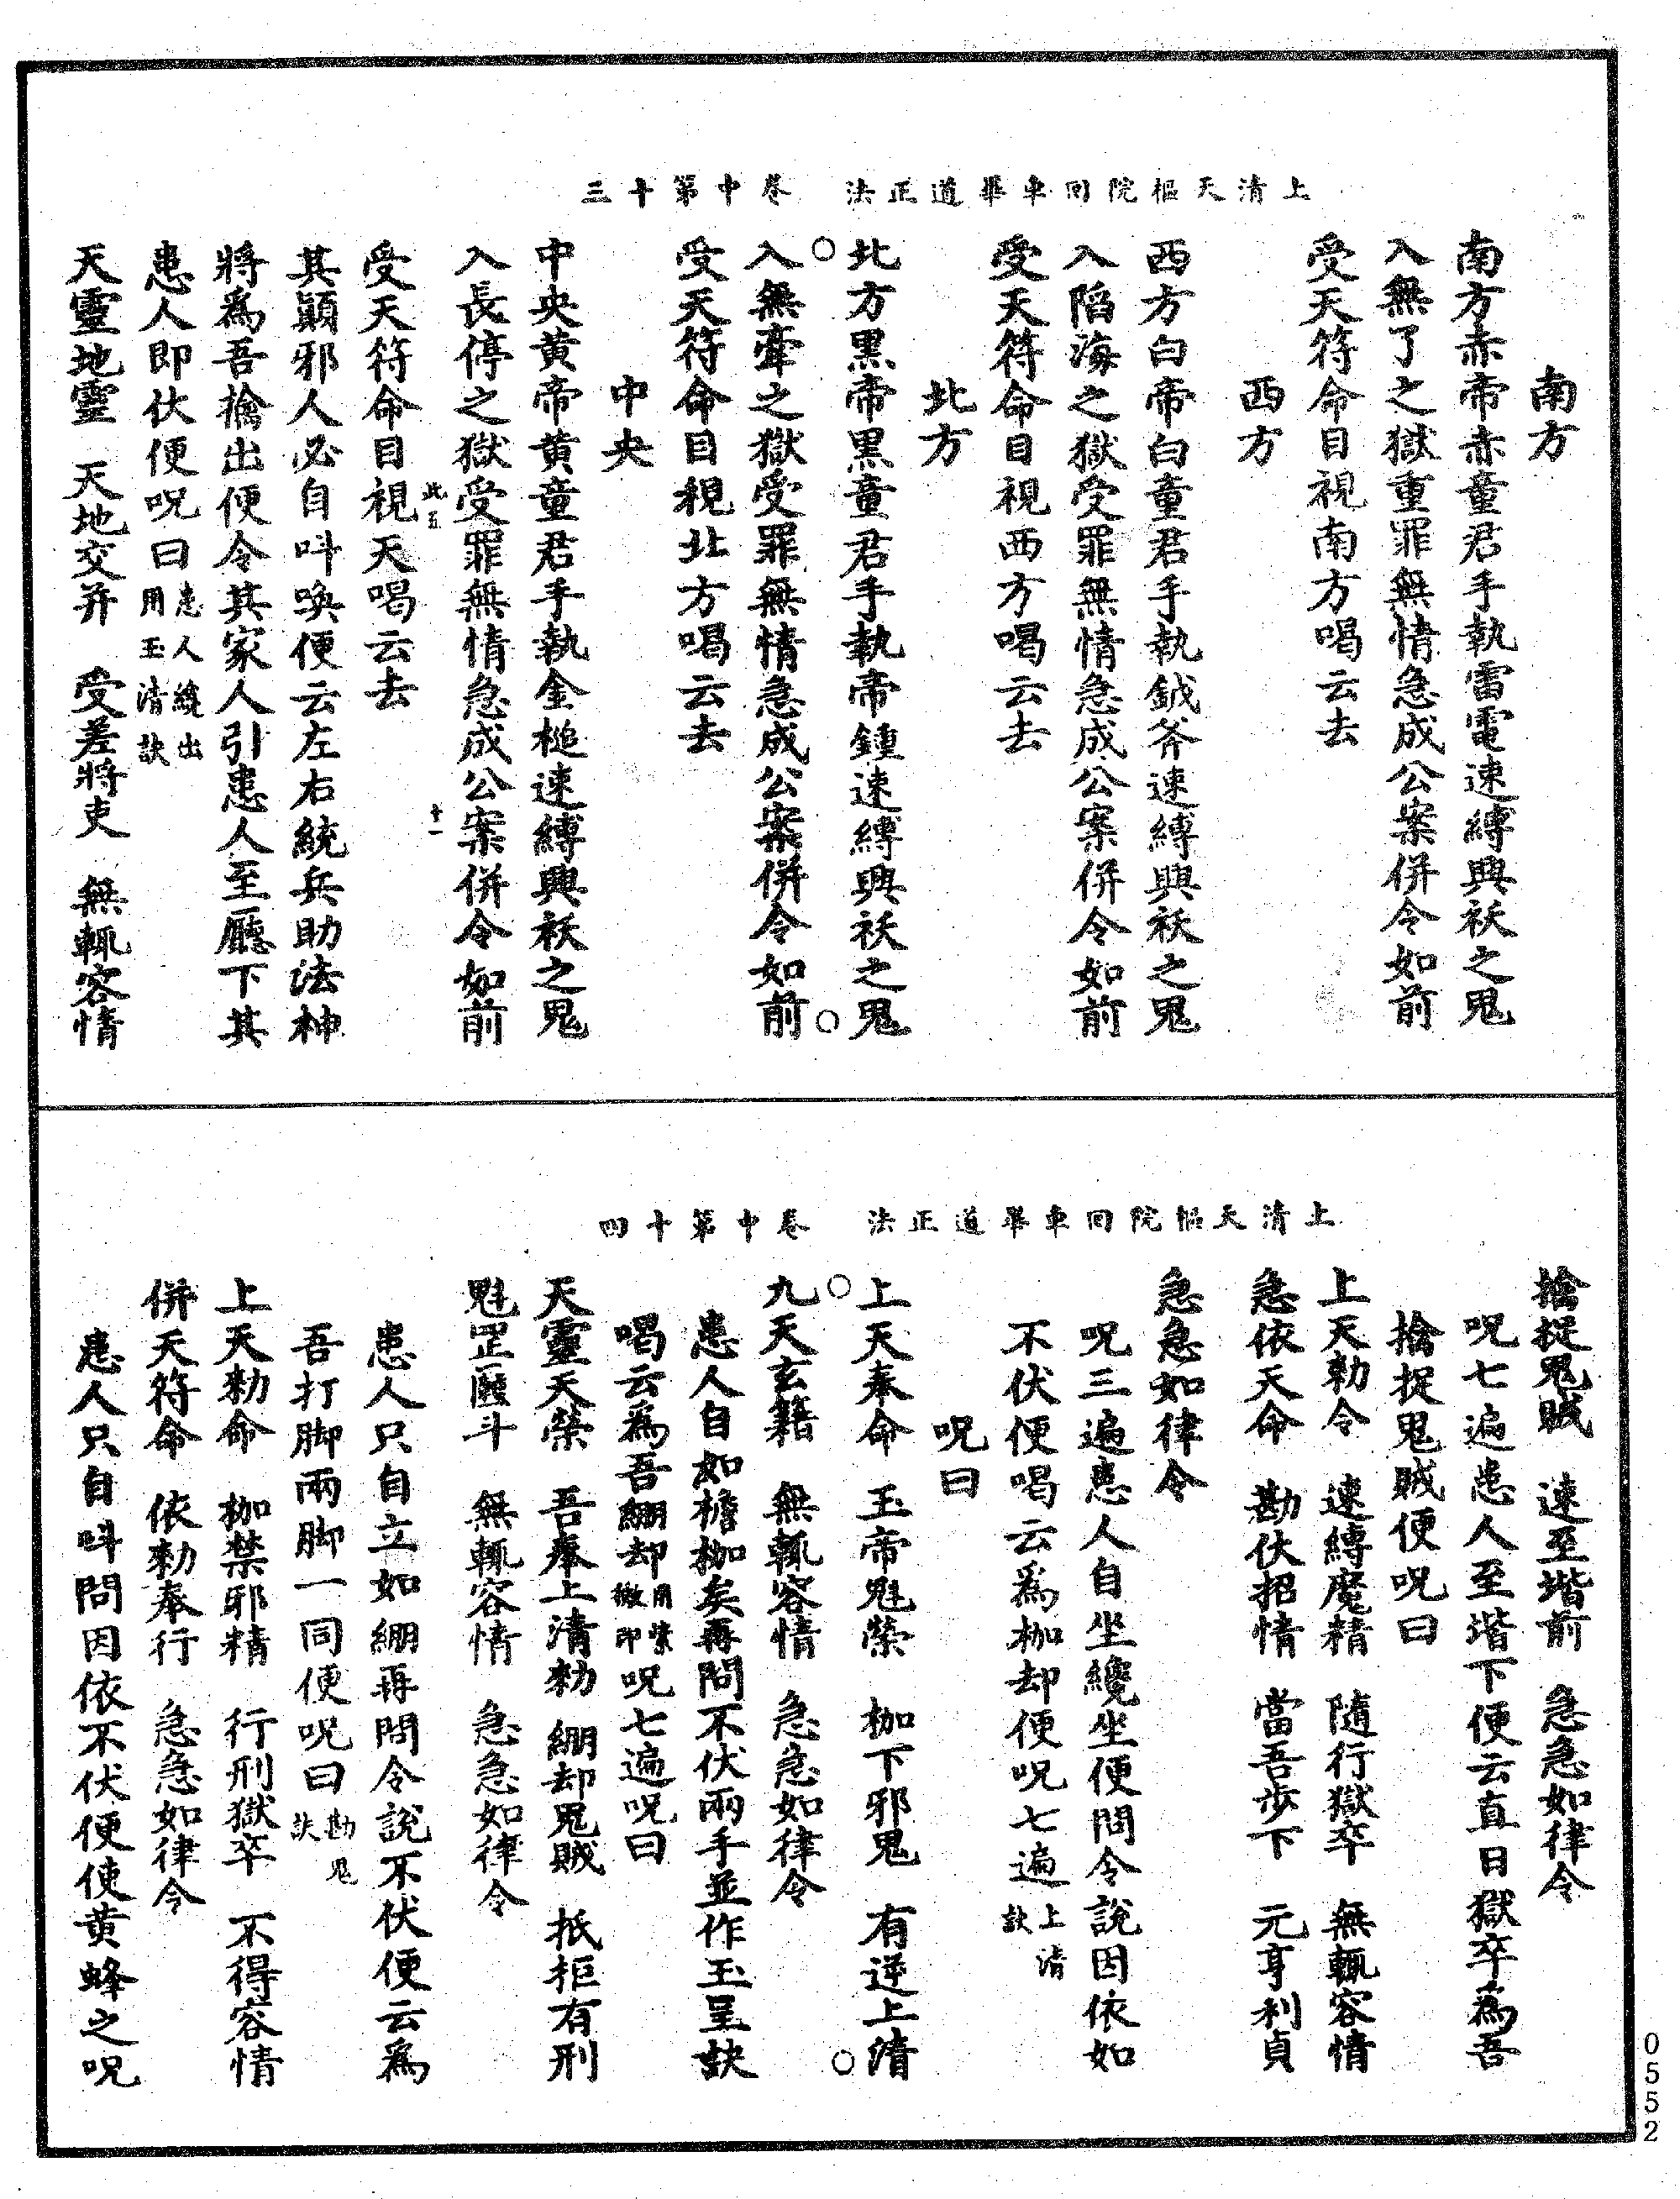 上清天樞院回車畢道正法　卷中第十三
南方
南方赤帝赤童君手執雷電速縛興祅之鬼
入無了之獄重罪無情急成公案併令如前
受天符命目視南方喝云去
西方
西方白帝白童君手執鉞斧速縛興祅之鬼
入陷海之獄受罪無情急成公案併令如前
受天符命目視西方喝云去
北方
北方黑帝黑童君手執帝鍾速縛興祅之鬼
入無牽之獄受罪無情急成公案併令如前
受天符命目視北方喝云去
中央
中央黃帝黃童君手執金槌速縛興祅之鬼
入長停之獄受罪無情急成公案併令如前
此五　十一
受天符命目視天喝云去
其顛邪人必自呌喚便云左右統兵助法神
將爲吾擒出便令其家人引患人至廳下其
患人即伏便呪曰患人纔出用玉清訣
天靈地靈　天地交并　受差將吏　無輒容情
上清天樞院回車畢道正法　卷中第十四
擒捉鬼賊　速至堦前　急急如律令
呪七遍患人至堦下便云直日獄卒爲吾
擒捉鬼賊便呪曰
上天勑令　速縛魔精　隨行獄卒　無輒容情
急依天命　勘伏招情　當吾步下　元亨利貞
急急如律令
呪三遍患人自坐纔坐便問令說因依如
不伏便喝云爲枷却便呪七遍上清訣
呪曰
上天奉命　玉帝魁榮　枷下邪鬼　有逆上清
九天玄籍　無輒容情　急急如律令
患人自如檐枷矣再問不伏兩手並作玉呈訣
喝云爲吾綳却用紫微印呪七遍呪曰
天靈天榮　吾奉上清勑　綳却鬼賊　抵拒有刑
魁罡匨斗　無輒容情　急急如律令
患人只自立如綳再問令說不伏便云爲
吾打脚兩脚一同便呪曰勘鬼訣
上天勑命　枷禁邪精　行刑獄卒　不得容情
併天符命　依勑奉行　急急如律令
患人只自呌問因依不伏便使黃蜂之呪
0552